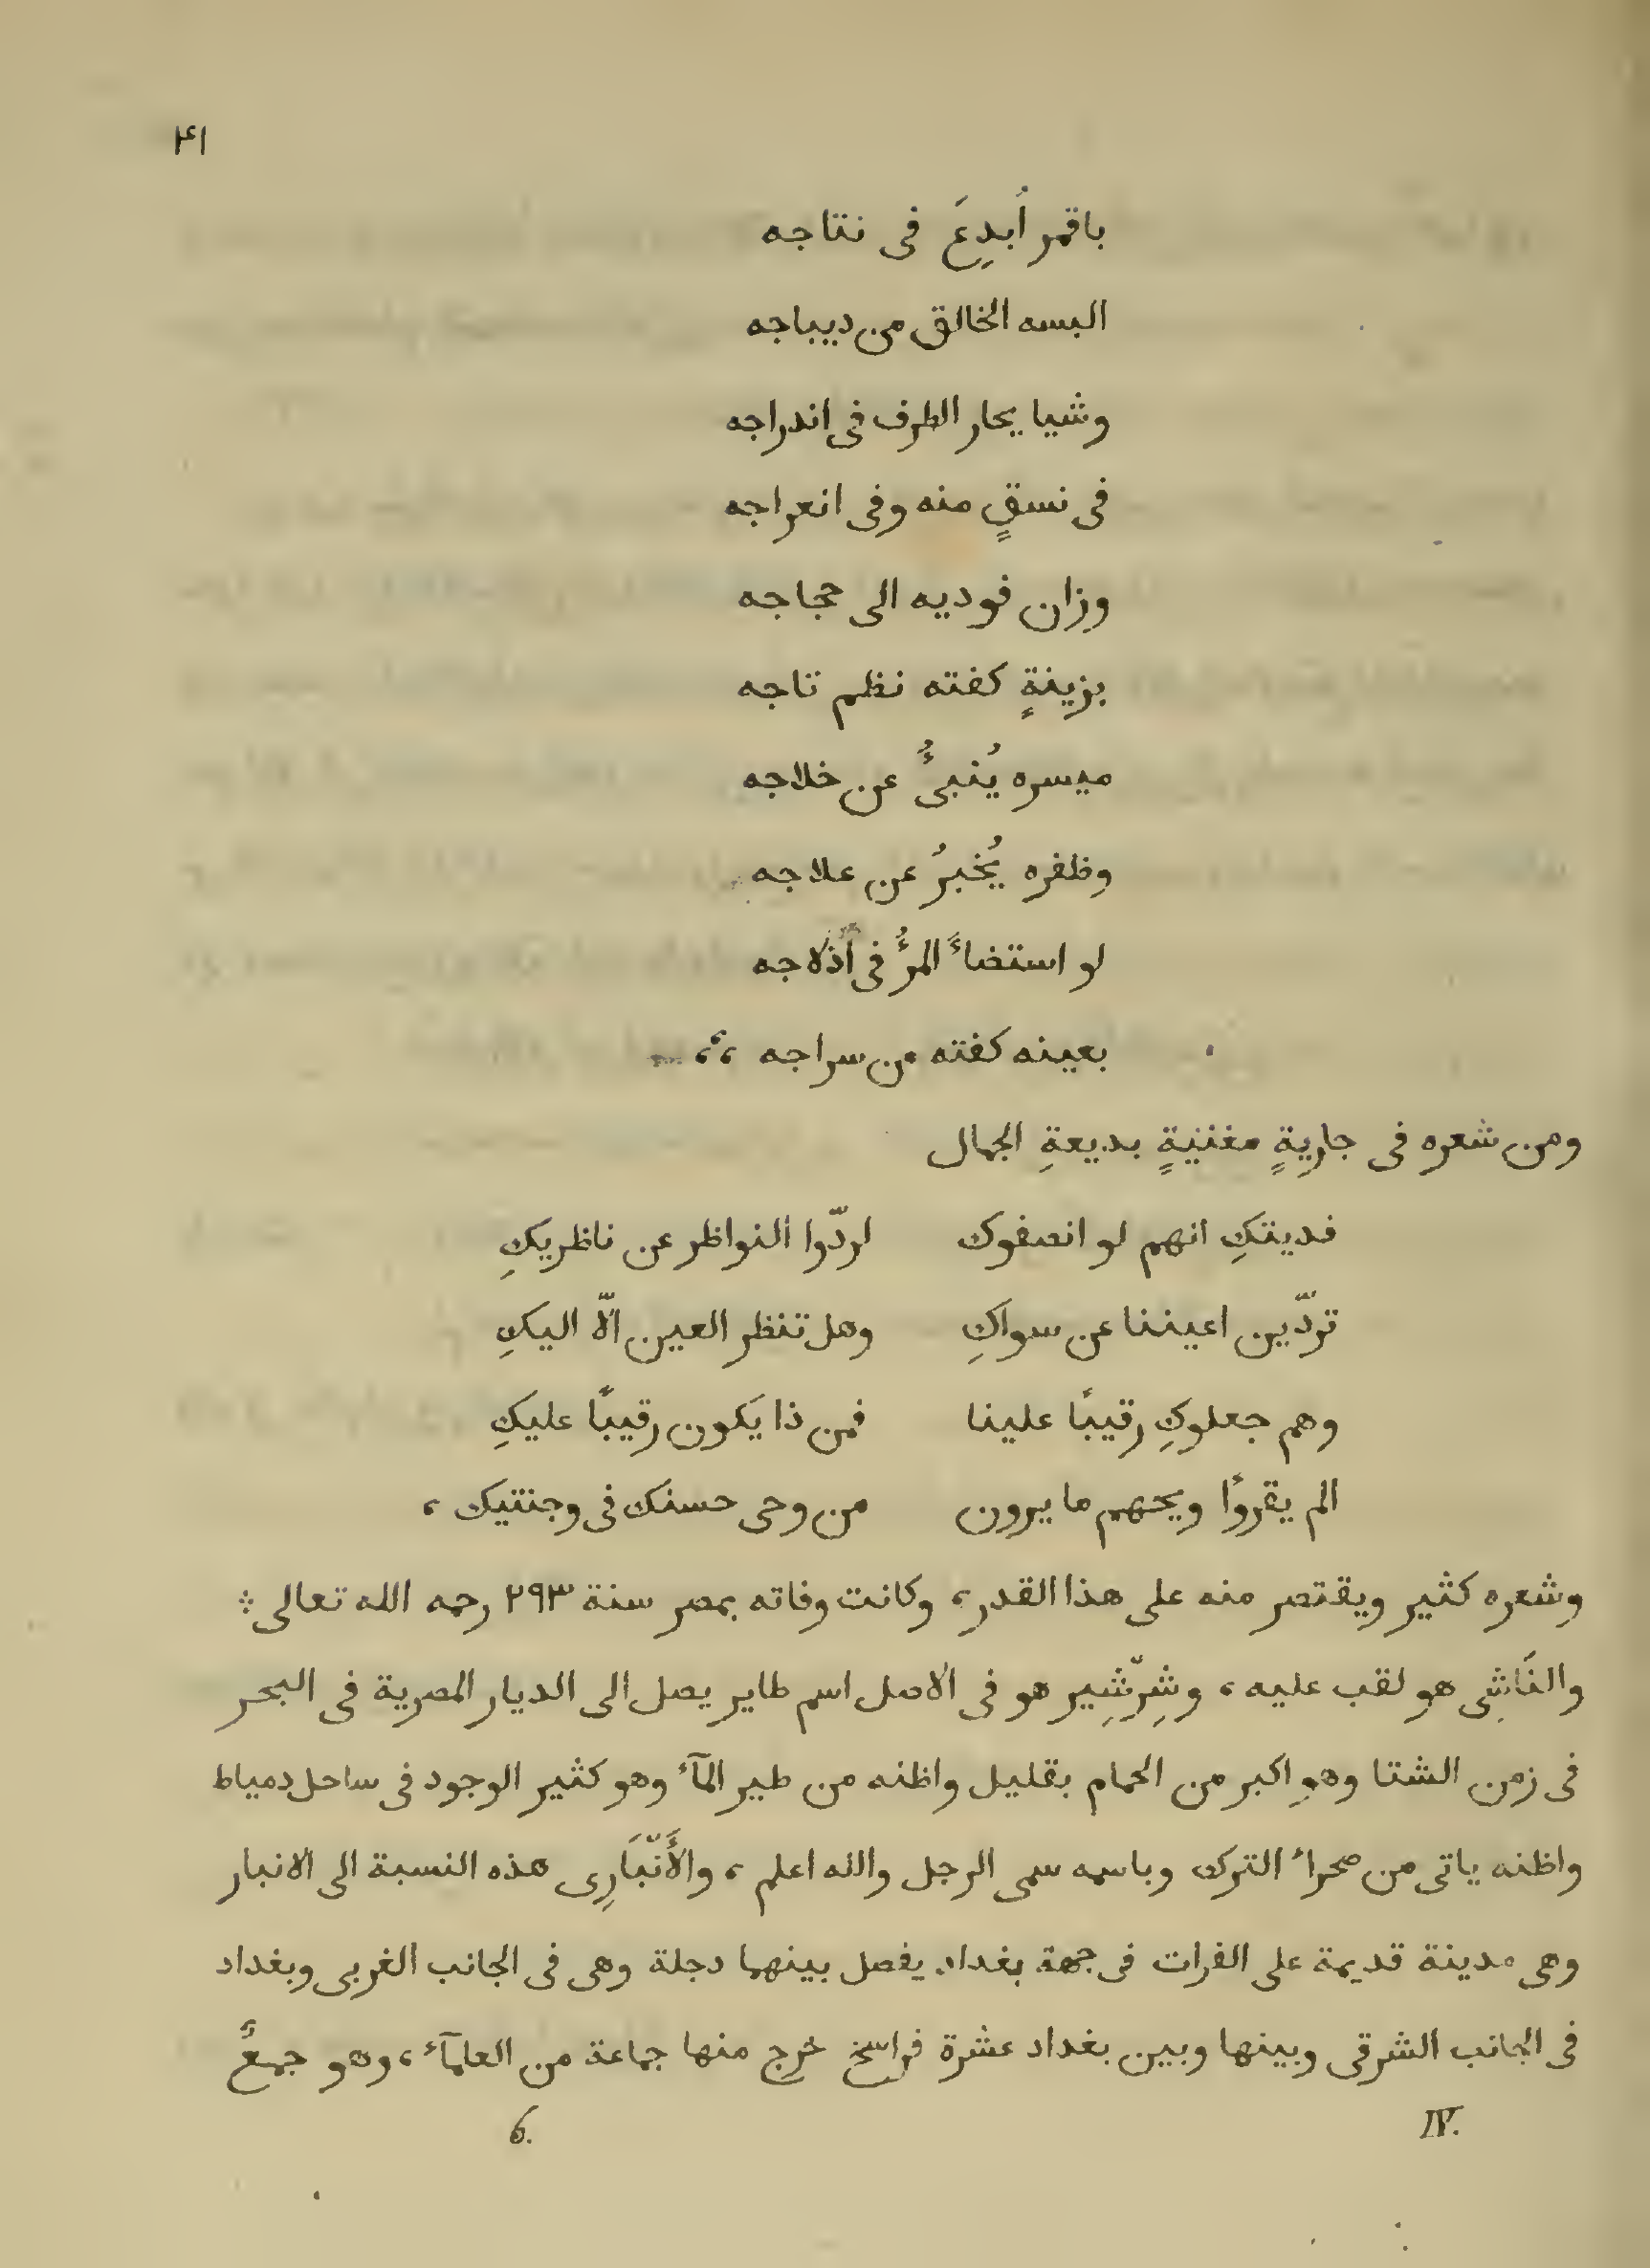 ٤١
باقمر أُبدِعَ فى نتاجه
البسه الخالق من ديباجه
وشيا يحار الطرف فى اندراجه
فى نسقٍ منه وفى انعراجه
وزان فوديه الى حجاجه
بزينةٍ كفته نظم تاجه
ميسره يُنبئُ عن خلاجه
وظفره يُخبرُ عن علاجه
لو استضاءَ المرءُ فى أدلاجه
بعينه كفته من سراجه ،،،
ومن شعره فى جاريةٍ مغنيةٍ بديعةِ الجمال
فديتكِ انهم لو انصفوك لردّوا النواظر عن ناظريكِ
تردّين اعيننا عن سواكِ وهل تنظر العين الّا اليكِ
وهم جعلوكِ رقيبًا علينا فمن ذا يكون رقيبًا عليكِ
الم يقروًا ويحهم ما يرون من وحى حسنك فى وجنتيك ،
وشعره كثير ويقتصر منه على هذا القدر ، وكانت وفاته بمصر سنة ٢٩٣ رحمه الله تعالى ؞
والنَاشِى هو لقب عليه ، وشِرّشِير هو فى الاصل اسم طاير يصل الى الديار المصرية فى البحر
فى زمن الشتا وهو اكبر من الحمام بقليل واظنه من طير المآء وهو كثير الوجود فى ساحل دمياط
واظنه ياتى من صحراء الترك وباسمه سمى الرجل والله اعلم ، والأَنّبَارِى هذه النسبة الى الانبار
وهى مدينة قديمة على الفرات فى جهة بغداد يفصل بينهما دجلة وهى فى الجانب الغربى وبغداد
فى الجانب الشرقى وبينها وبين بغداد عشرة فراسخ خرج منها جماعة من العلمآء ، وهو جمعُ
IV. 6.